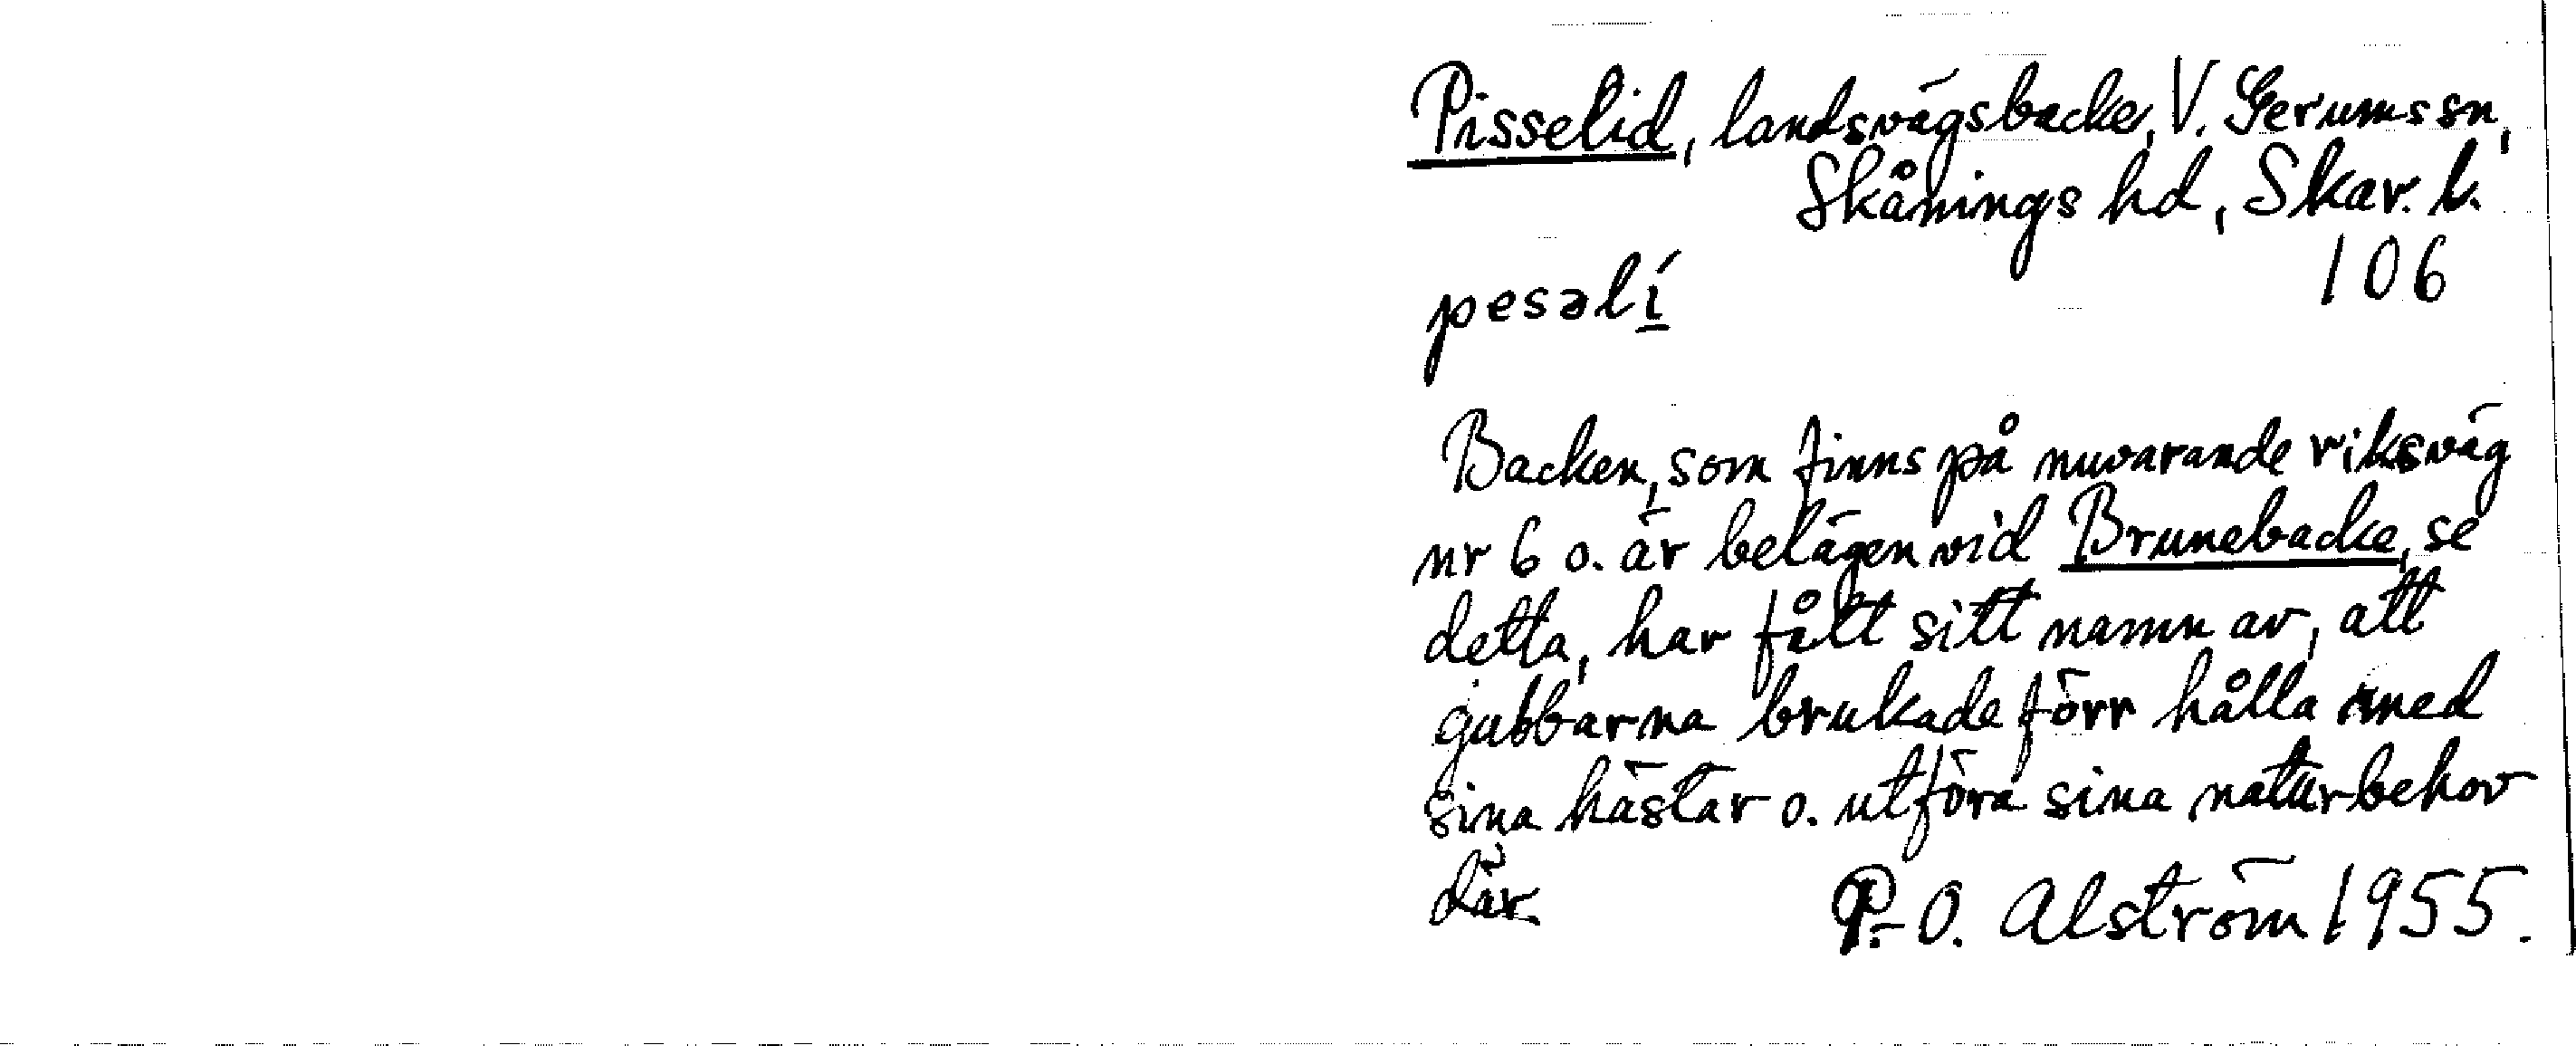 Pisselid, landsvägsbacke, V. Gerums sn,
Skånings hd, Skar. l.
106
pesəlí
Backen, som finns på nuvarande riksväg
nr 6 o. är belägen vid Brunebacke, se
detta, har fått sitt namn av, att
gubbarna brukade förr hålla med
sina hästar o. utföra sina naturbehov
där.
P.-O. Alström 1955.